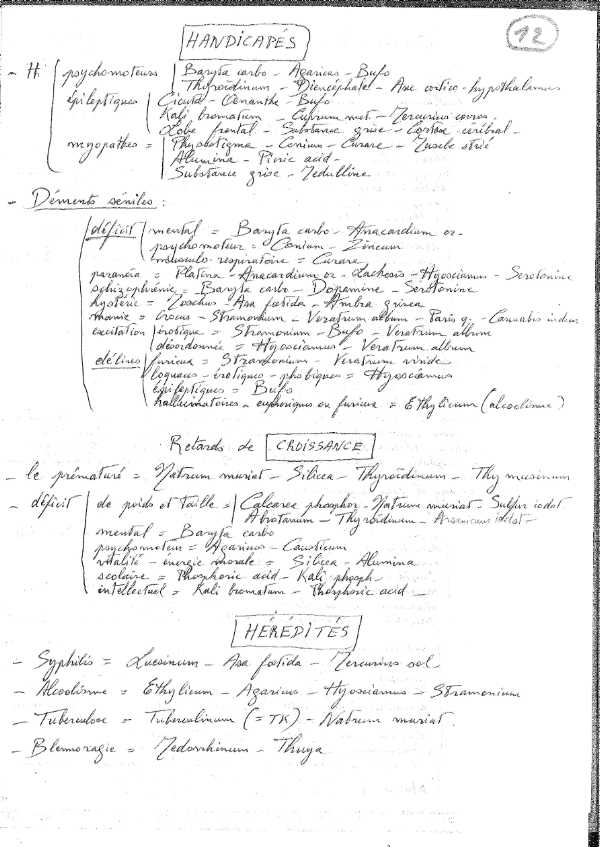 12
HANDICAPÉS
- H. psychomoteurs Baryta carbo - Agaricus - Bufo
Thyroïdinum - Diencéphale - Axe cortico-hypothalamus
épileptiques Cicuta - Oenanthe - Bufo
Kali bromatum - Cuprum met - Mercurius corros.
Lobe frontal - Substance grise - Cortex cérébral -
myopathes = Physostigma - Conium - Curare - Muscle strié
Alumina - Picric acid -
Substance grise - Medulline
- Déments séniles :
déficit mental = Baryta carbo - Anacardium or -
psychomoteur = Conium - Zincum
musculo-respiratoire = Curare
paranoïa = Platina - Anacardium or - Lachesis - Hyosciamus - Serotonine
schizophrénie = Baryta carbo - Dopamine - Serotonine
hystérie = Moschus - Asa foetida - Ambra grisea
manie = Crocus - Stramonium - Veratrum album - Paris q - Cannabis indica
excitation érotique = Stramonium - Bufo - Veratrum album
désordonnée = Hyosciamus - Veratrum album
délires furieux = Stramonium - Veratrum viride
loquaces - érotiques - phobiques = Hyosciamus
épileptiques = Bufo
hallucinatoires - euphoriques ou furieux = Ethylicum (alcoolisme)
Retards de CROISSANCE
- le prématuré = Natrum muriat - Silicea - Thyroïdinum - Thymusinum
- déficit de poids et taille = Calcarea phosphor - Natrum muriat - Sulfur iodat
Abrotanum - Thyroïdinum - Arsenicum iodat -
mental = Baryta carbo
psychomoteur = Agaricus - Causticum
vitalité - énergie morale = Silicea - Alumina
scolaire = Phosphoric acid - Kali phosph -
intellectuel = Kali bromatum - Phosphoric acid -
HÉRÉDITÉS
- Syphilis = Luesinum - Asa foetida - Mercurius sol
- Alcoolisme = Ethylicum - Agaricus - Hyosciamus - Stramonium
- Tuberculose = Tuberculinum (= TK) - Natrum muriat.
- Blennoragie = Medorrhinum - Thuya